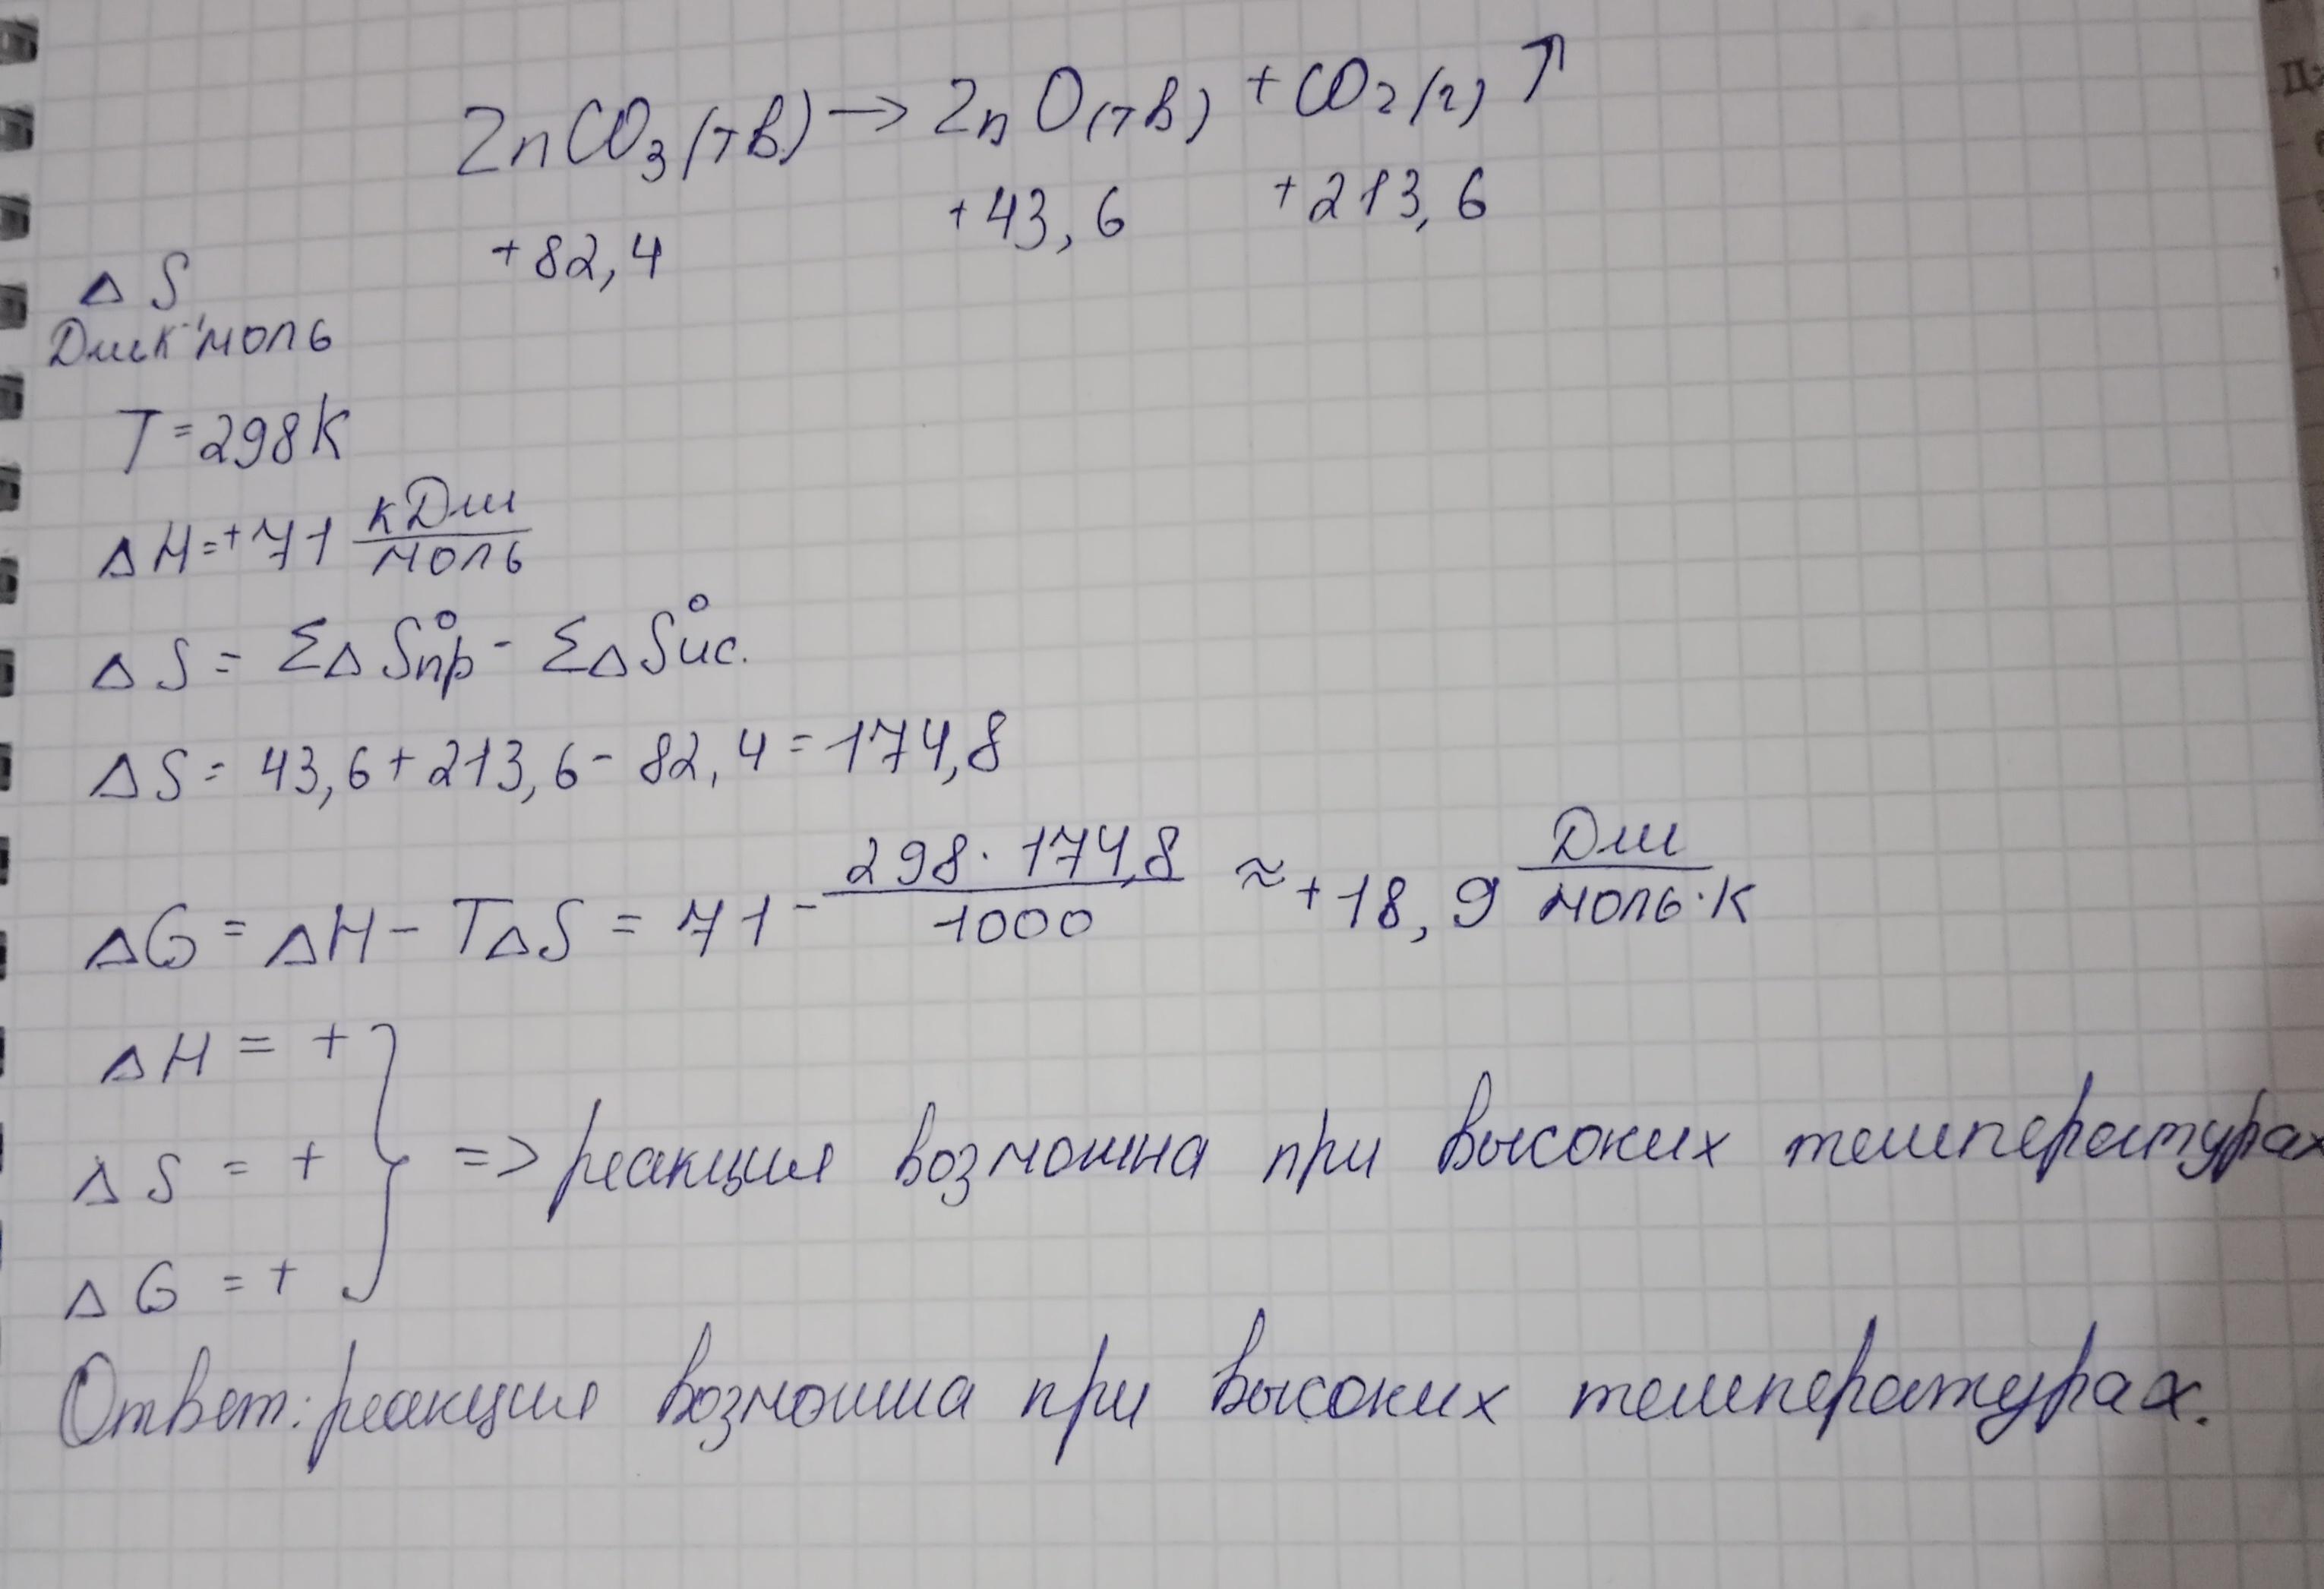 ZnCO₃(тв) → ZnO(тв) + CO₂(г) ↑
+82,4 +43,6 +213,6
Δ S
Дж К⁻¹моль
T = 298K
ΔH = +71 кДж/моль
ΔS = ΣΔS°пр - ΣΔS°ис.
ΔS = 43,6 + 213,6 - 82,4 = 174,8
ΔG = ΔH - TΔS = 71 - 298 · 174,8/1000 ≈ +18,9 Дж/моль·К
ΔH = +
ΔS = + => реакция возможна при высоких температурах
ΔG = +
Ответ: реакция возможна при высоких температурах.